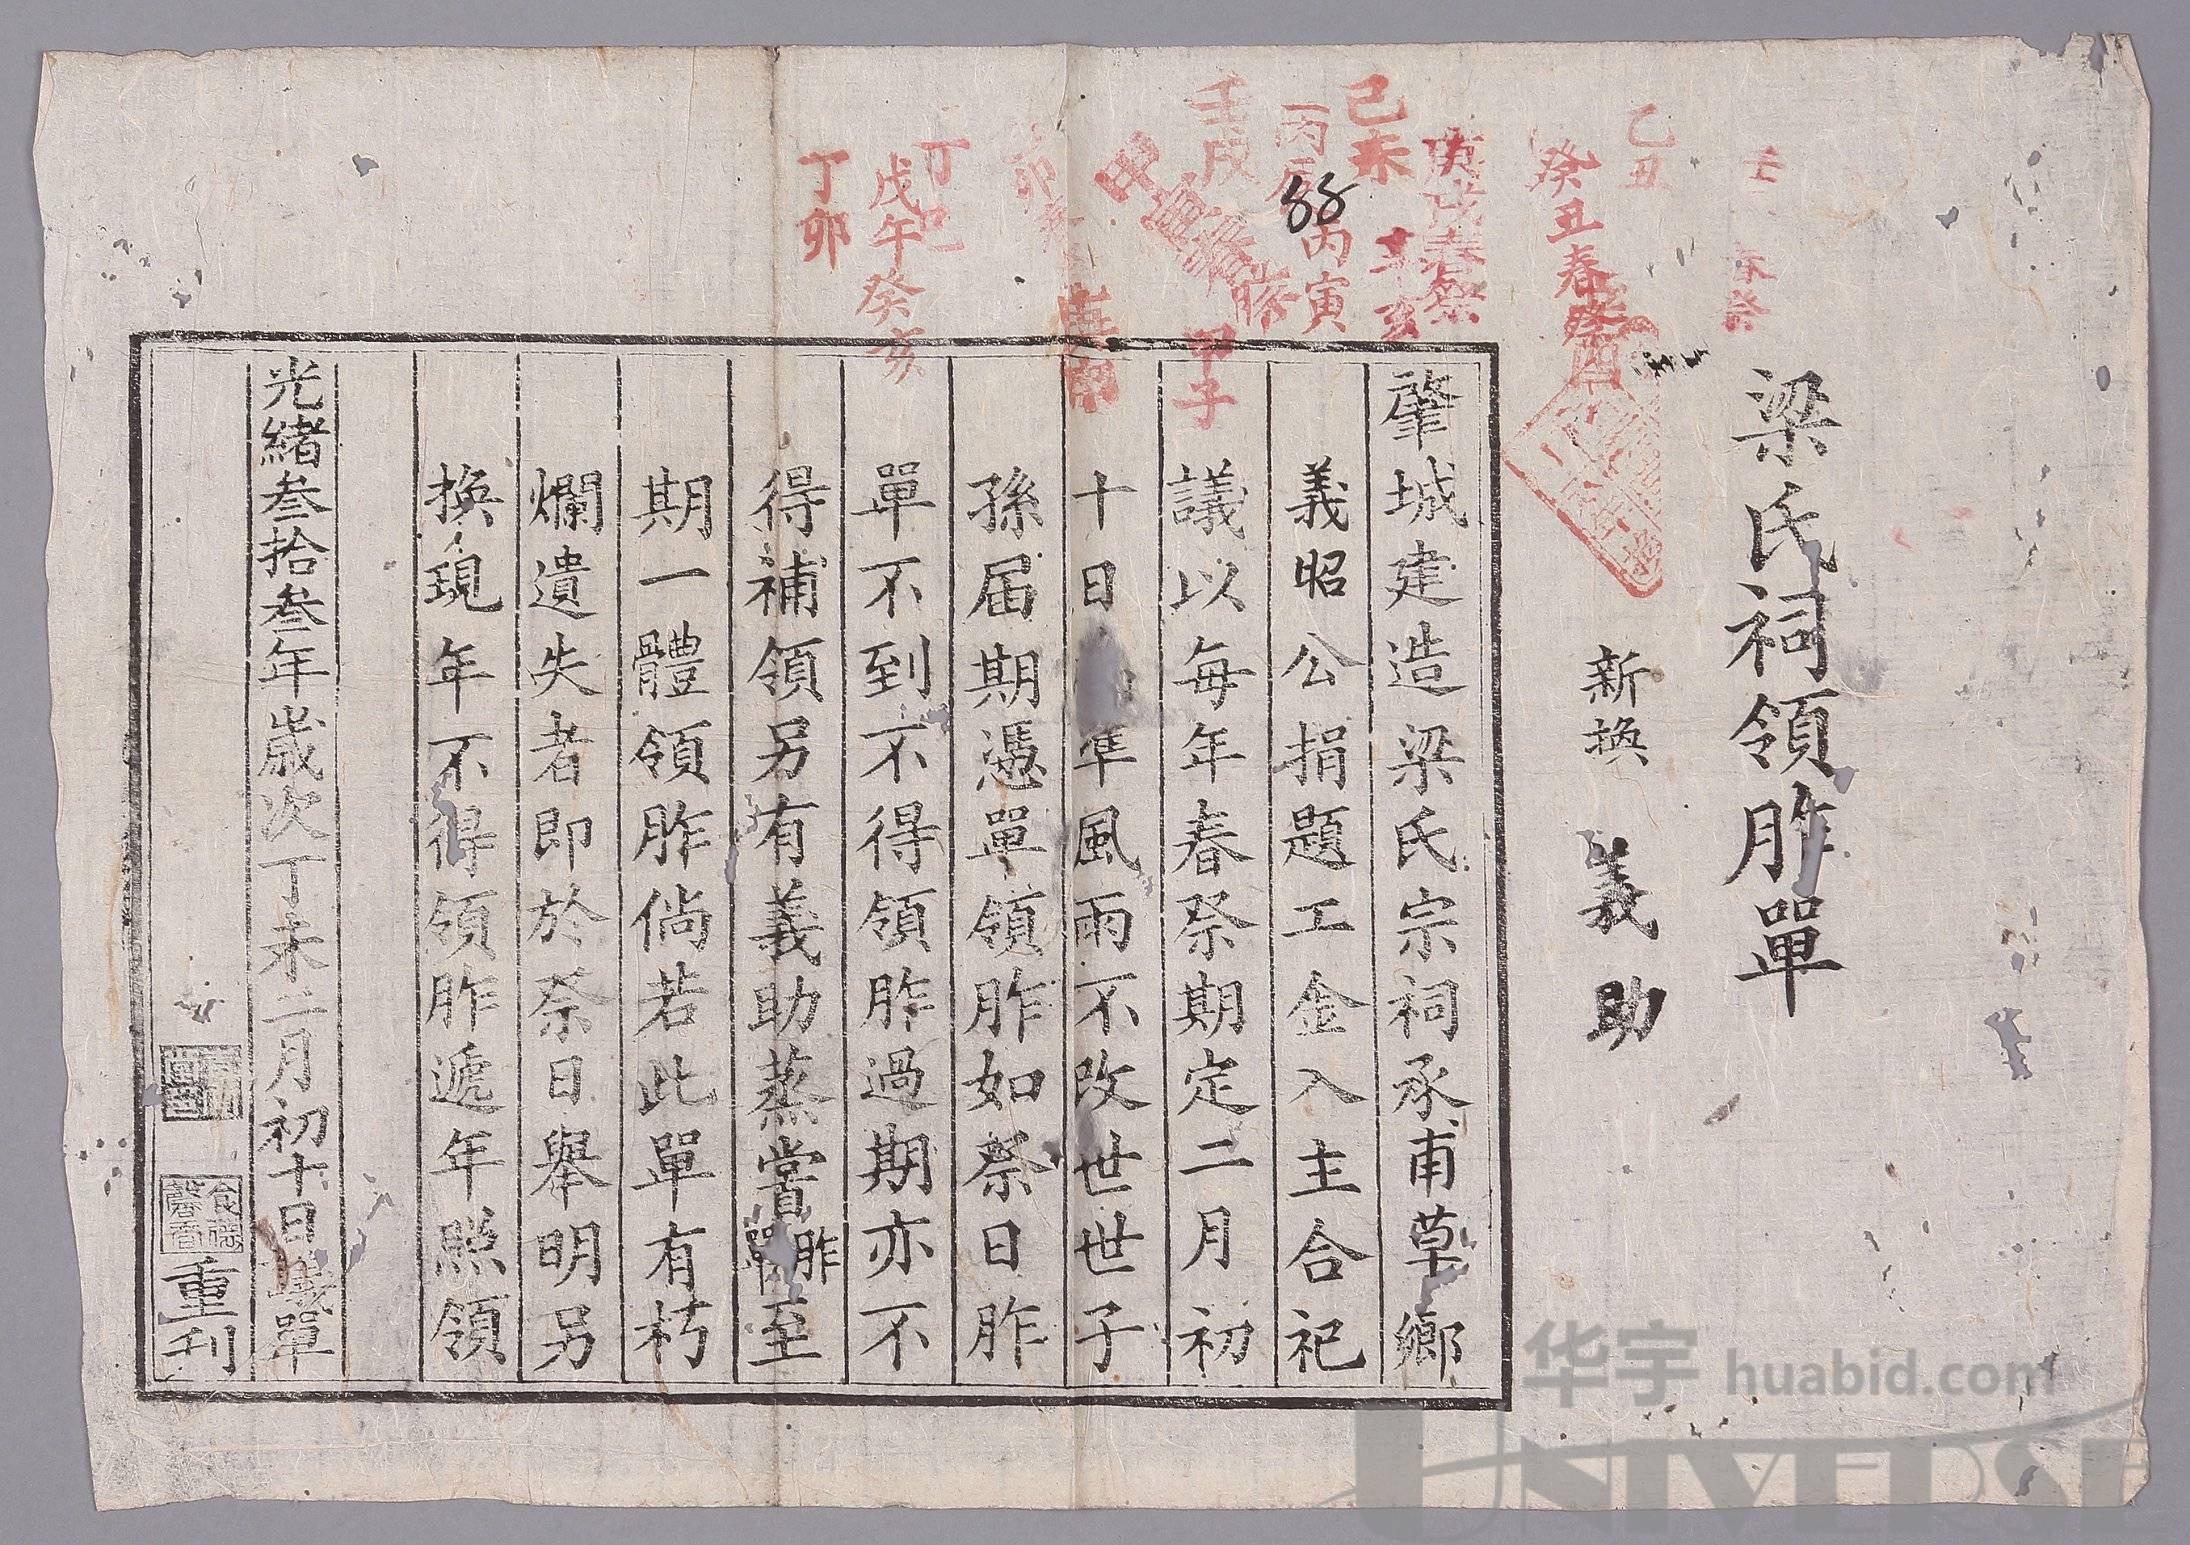 梁氏祠領胙單
新換 義助
肇城建造梁氏宗祠承甫草鄉
義昭公捐題工金入主合祀
議以每年春祭期定二月初
十日 準風雨不改世世子
孫届期憑單領胙如祭日胙
單不到不得領胙過期亦不
得補領另有義助蒸嘗胙單至
期一體領胙倘若此單有朽
爛遺失者即於祭日舉明另
換現年不得領胙遞年照領
光緒叁拾叁年歲次丁未二月初十日 單
重刊
乙丑
癸丑春祭
春祭
庚戌春祭
辛亥
己未
丙辰
丙寅
壬戌
甲寅春祭
甲子
丁巳
戊午
癸亥
丁卯
88
华宇 huabid.com
UNIVERSE